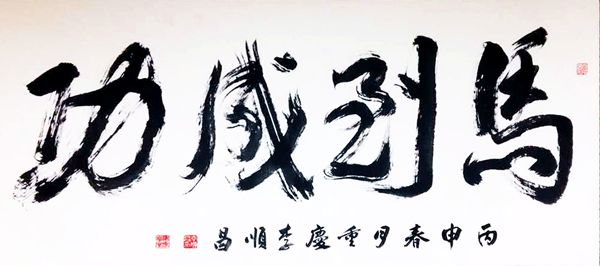 馬到成功
丙申春月重慶李順昌